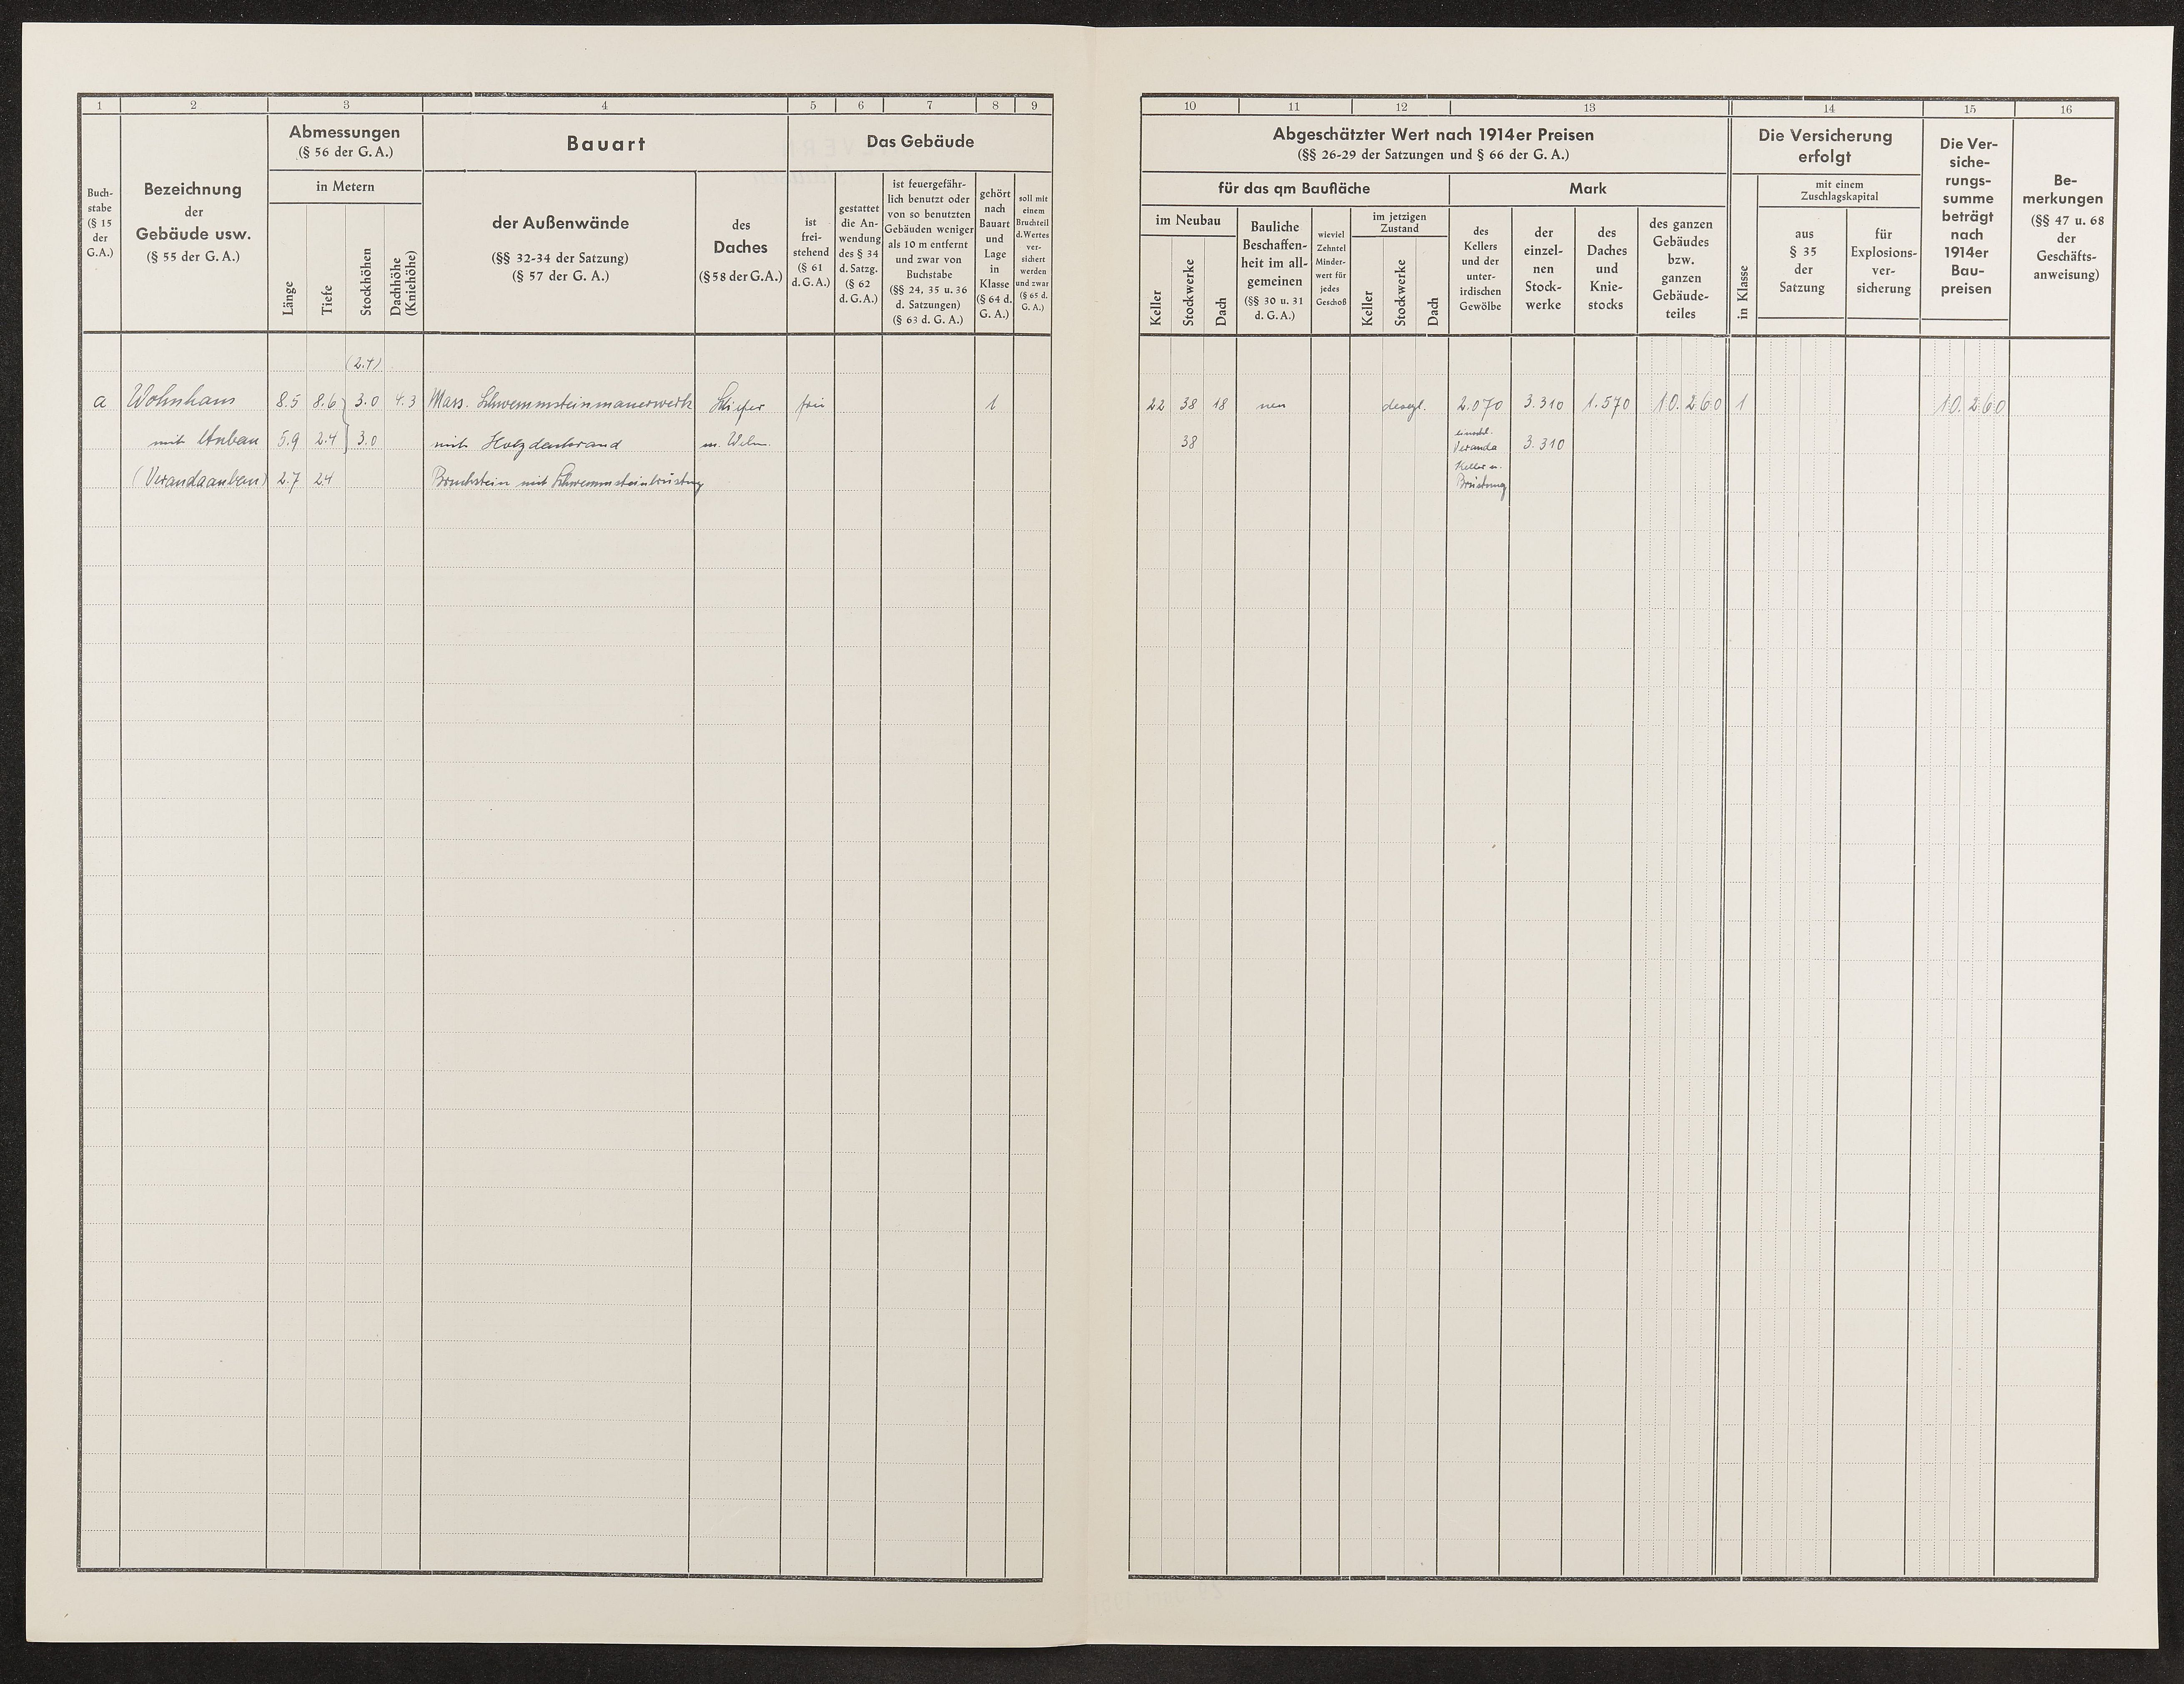 1 2 3 4 5 6 7 8 9
Abmessungen
(§ 56 der G. A.)
Bauart
Das Gebäude
Buch-
stabe
(§ 15
der
G.A.)
Bezeichnung
der
Gebäude usw.
(§ 55 der G. A.)
in Metern
Länge
Tiefe
Stockhöhen
Dachhöhe
(Kniehöhe)
der Außenwände
(§§ 32-34 der Satzung)
(§ 57 der G. A.)
des
Daches
(§ 58 der G. A.)
ist
frei-
stehend
(§ 61
d. G. A.)
gestattet
die An-
wendung
des § 34
d. Satzg.
(§ 62
d. G. A.)
ist feuergefähr-
lich benutzt oder
von so benutzten
Gebäuden weniger
als 10 m entfernt
und zwar von
Buchstabe
(§§ 24, 35 u. 36
d. Satzungen)
(§ 63 d. G. A.)
gehört
nach
Bauart
und
Lage
in
Klasse
(§ 64 d.
G. A.)
soll mit
einem
Bruchteil
d. Wertes
ver-
sichert
werden
und zwar
(§ 65 d.
G. A.)
(2.4)
a Wohnhaus 8.5 8.6 3.0 4.3 Mass. Schwemmsteinmauerwerk Schiefer frei 1
mit Anbau 5.9 2.4 3.0 mit Holzdachrand m.
(Verandaanbau) 2.7 2.4 Bruchstein mit Schwemmsteinbrüstung
10 11 12 13 14 15 16
Abgeschätzter Wert nach 1914er Preisen
(§§ 26-29 der Satzungen und § 66 der G. A.)
für das qm Baufläche
Mark
im Neubau
Keller
Stockwerke
Dach
Bauliche
Beschaffen-
heit im all-
gemeinen
(§§ 30 u. 31
d. G. A.)
wieviel
Zehntel
Minder-
wert für
jedes
Geschoß
im jetzigen
Zustand
Keller
Stockwerke
Dach
des
Kellers
und der
unter-
irdischen
Gewölbe
der
einzel-
nen
Stock-
werke
des
Daches
und
Knie-
stocks
des ganzen
Gebäudes
bzw.
ganzen
Gebäude-
teiles
Die Versicherung
erfolgt
in Klasse
mit einem
Zuschlagskapital
aus
§ 35
der
Satzung
für
Explosions-
ver-
sicherung
Die Ver-
siche-
rungs-
summe
beträgt
nach
1914er
Bau-
preisen
Be-
merkungen
(§§ 47 u. 68
der
Geschäfts-
anweisung)
22 38 18 neu desgl. 2.070 3.310 1.570 10.260 1 10.260
38 einschl. Veranda 3.310
Keller u.
Brüstung